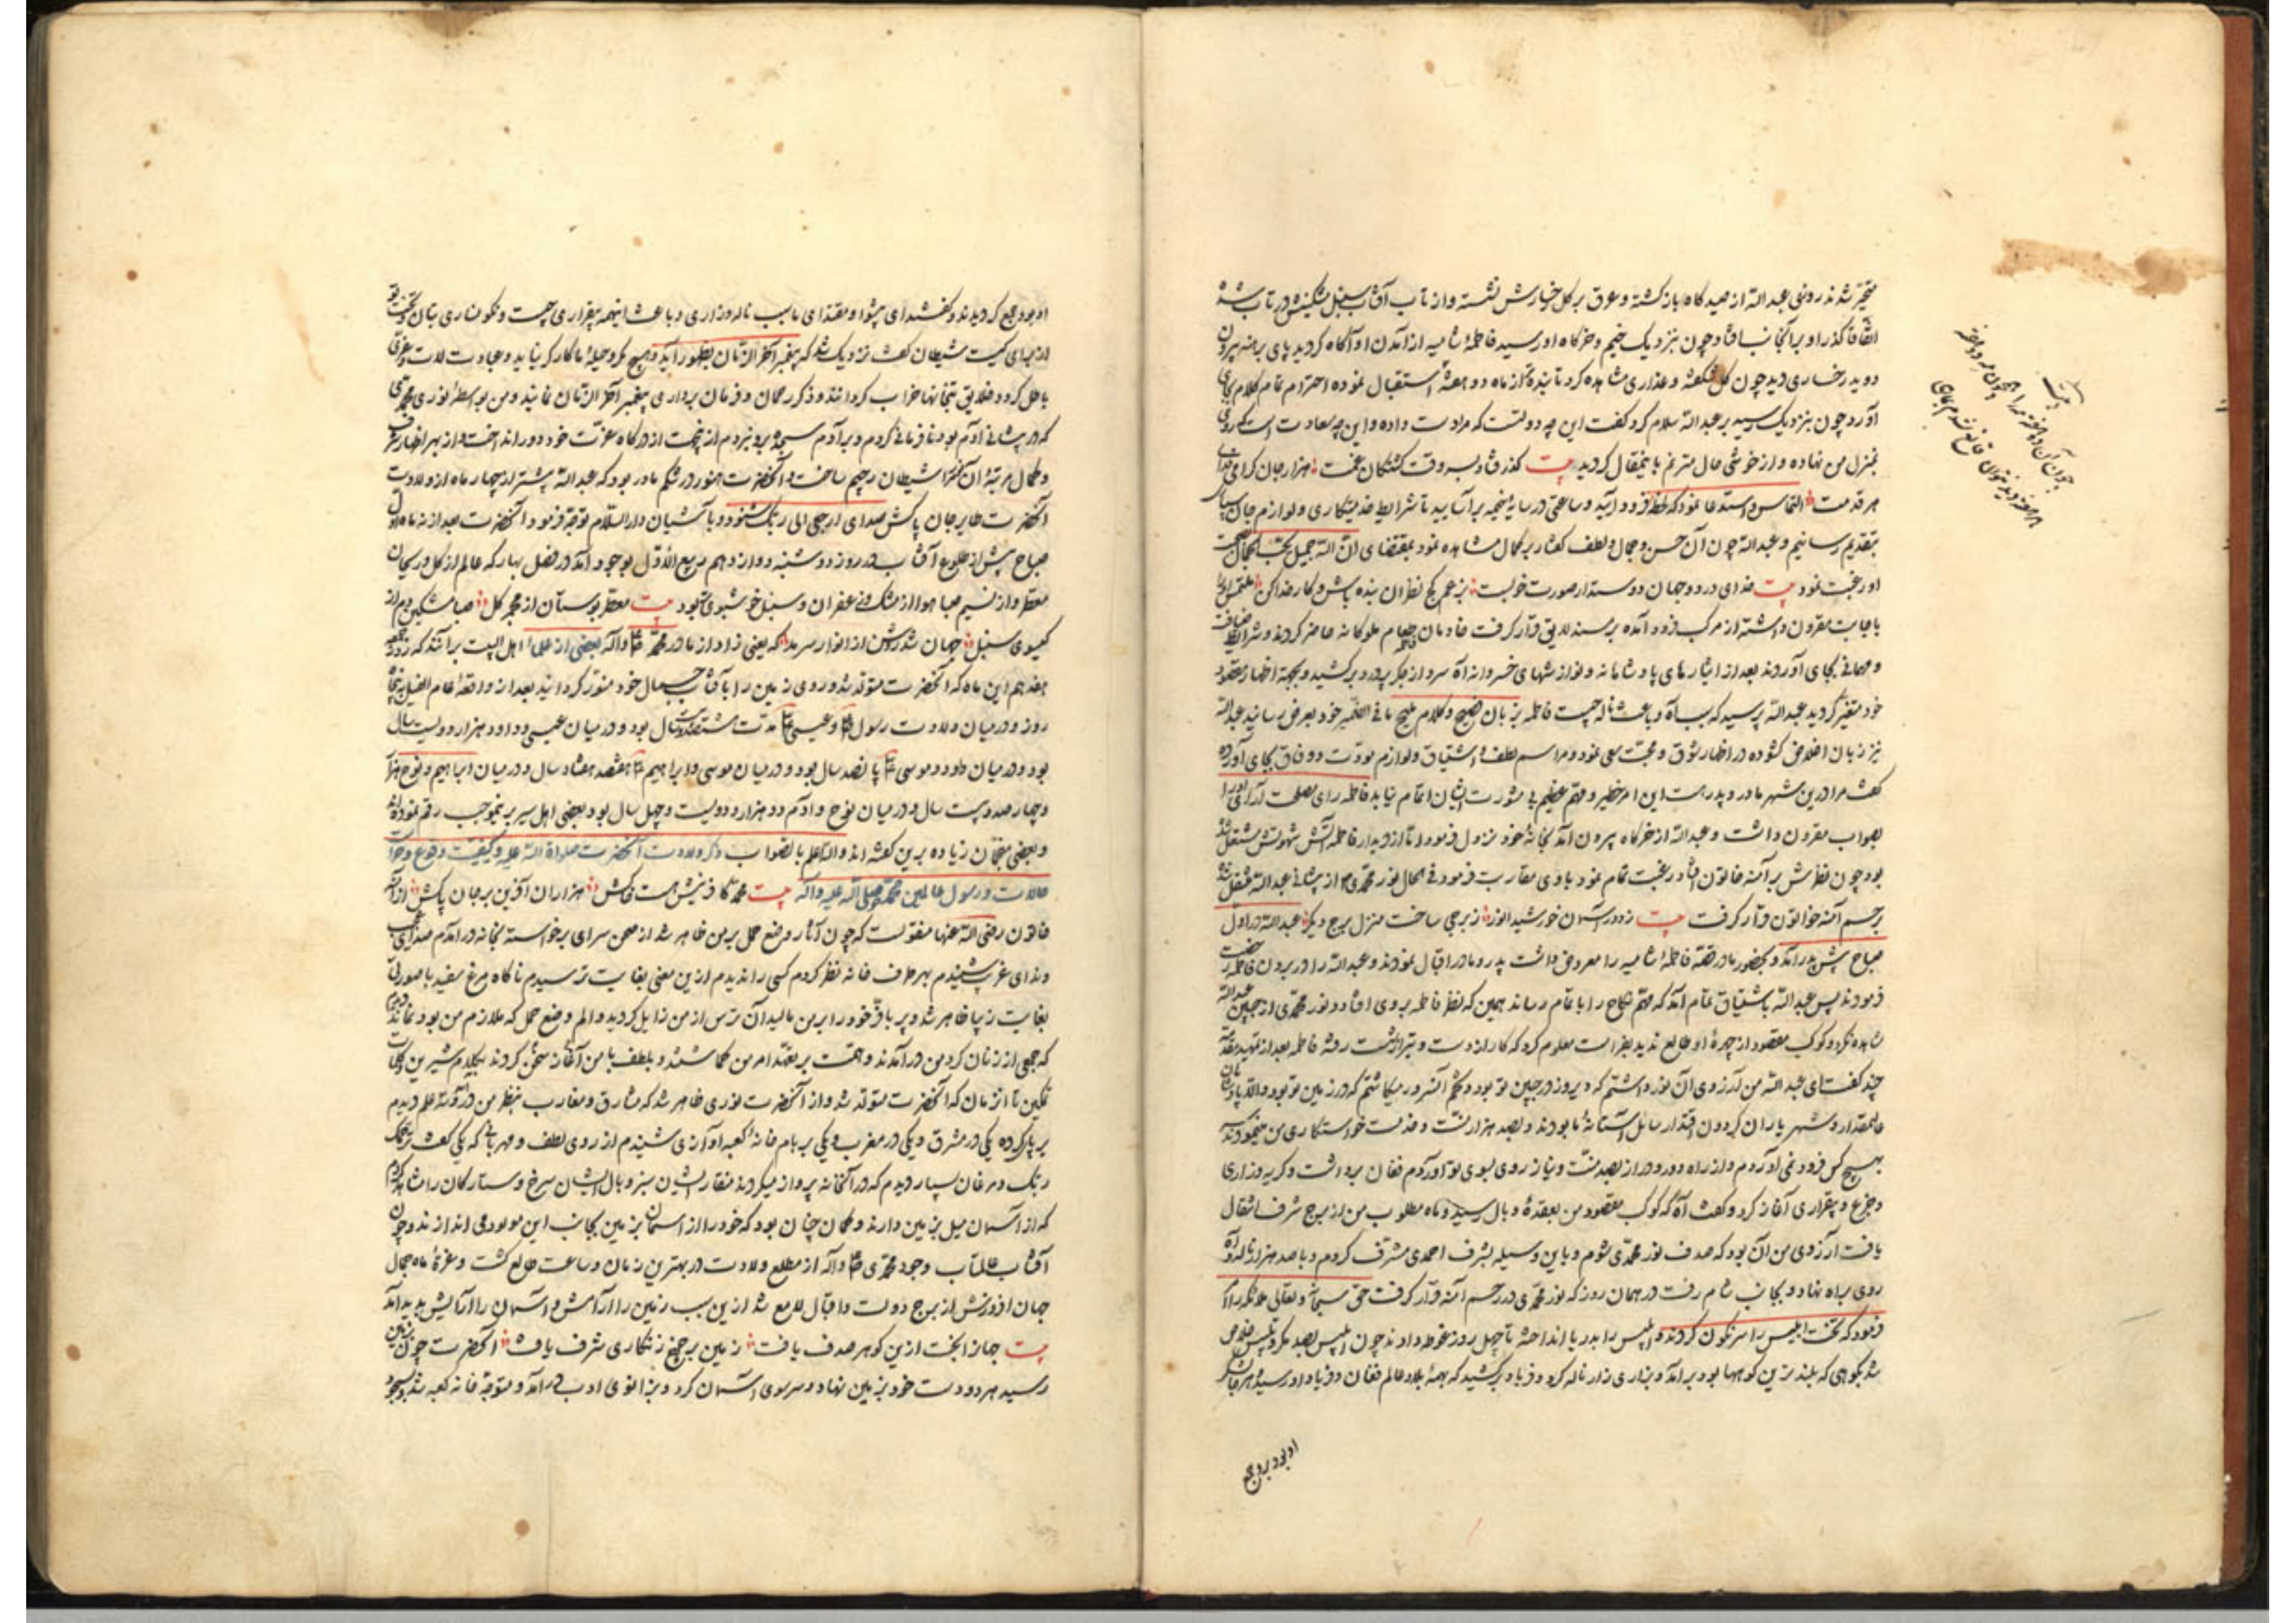 متحیر شدند روزی عبد الله از صید کاه باز کشته و عرق بر کل رخسارش نشسته و از تاب آفتاب سنبل مشکینش در تاب شده
اتفاقا گذر او بر آنجانب افتاد چون بنزدیک خیم و خرکاه او رسید فاطمهٔ شامیه از آمدن او آگاه کردید پای برهنه بیرون
دوید رخساری دید چون کل شکفته و عذاری مشاهده کرد تابنده تر از ماه دو هفته استقبال نموده احترام تمام بجای
آورد چون بنزدیک رسید بر عبد الله سلام کرد کفت این چه دولتست که مرا دست داده و این چه سعادت است که روی
بمنزل من نهاده و از خوشی حال مترنم باینمقال کردید بیت گذر فتاد بسر وقت کشتکان غمت هزار جان کرامی فدای
هر قدمت التماس و استدعا نمود که لحظهٔ فرود آیید و ساعتی در سایهٔ خیمه بر آسایید تا شرایط خدمتکاری و لوازم جان سپاری
بتقدیم رسانیم و عبد الله چون آن حسن و جمال و لطف کفتار بر کمال مشاهده نمود بمقتضای ان الله جمیل یحب الجمال بصحبت
او رغبت نمود بیت خدای در دو جهان دوستدار صورت خوبست بزعم کج نظران بنده باش و کار خدا کن ملتمس او را
باجابت مقرون داشته از مرکب فرود آمده بر مسند لایق قرار کرفت خادمان طعام ملوکانه حاضر کردند و شرایط ضیافت
و مهمانی بجای آوردند بعد از ایثارهای پادشاهانه و نوازشهای خسروانه آه سرد از جکر پر درد بر کشید و بجهة اظهار مقصود
خود متغیر کردید عبد الله پرسید که سبب آه و باعث ناله چیست فاطمه بزبان فصیح و کلام ملیح ما فی الضمیر خود بعرض رسانید عبد الله
نیز زبان اخلاص کشوده در اظهار شوق و محبت سعی نمود و مراسم لطف و اشتیاق و لوازم مودت و وفاق بجای آورده
کفت مرا درین شهر مادر و پدرست این امر خطیر و مهم عظیم بی مشورت ایشان اتمام نیابد فاطمه رای مصلحت آرای او را
بصواب مقرون داشت و عبد الله از خرکاه بیرون آمد بخانهٔ خود نزول فرمود اما از دیدار فاطمه آتش شهوتش مشتعل شده
بود چون نظرش بر آمنه خاتون افتاد رغبت تمام نمود با وی مقاربت فرمود فی الحال نور محمدی از پیشانی عبد الله منتقل شده
برحم آمنه خواتون قرار کرفت بیت زدور آسمان خورشید انور ز برجی ساخت منزل برج دیکر عبد الله در اول
صباح پیش پدر آمد و بحضور مادر قصهٔ فاطمهٔ شامیه را معروض داشت پدر و مادر اقبال نمودند و عبد الله را در بردن فاطمه رخصت
فرمودند پس عبد الله باشتیاق تمام آمد که مهم نکاح را باتمام رساند همین که نظر فاطمه بروی افتاد و نور محمدی از جبین عبد الله
مشاهده نکرد و کوکب مقصود از چهرهٔ او طالع ندید بفراست معلوم کرد که کار از دست و تیر از شست رفته فاطمه بعد از تمهید مقدمهٔ
چند کفت ای عبد الله من آرزوی آن نور داشتم که دیروز در جبین تو بود و تخم آن سرور میکاشتم که در زمین تو بود و الا پادشاهان
عالیمقدار و شهریاران کردون اقتدار سایل آستانهٔ ما بودند و بصد هزار منت و خدمت خواستکاری من مینمودند
بهیچ کس فرود نمی آوردم و از راه دور و دراز بصد منت و نیاز روی بسوی تو آوردم فغان برداشت و کریه و زاری
و جزع و بیقراری آغاز کرد و کفت آه که کوکب مقصود من بعقدهٔ وبال رسید و ماه مطلوب من از برج شرف انتقال
یافت آرزوی من آن بود که صدف نور محمدی شوم و باین وسیله بشرف احمدی مشرف کردم و با صد هزار ناله و آه
روی براه نهاد و بجانب شام رفت در همان روز که نور محمدی در رحم آمنه قرار کرفت حق سبحانه و تعالی ملائکه را امر
فرمود که تخت ابلیس را سرنکون کردند و ابلیس را بدریا انداخته تا چهل روز غوطه دادند چون ابلیس بصد مکر و تلبیس خلاص
شد بکوهی که بلندترین کوهها بود برآمد و بزاری زار ناله کرد و فریاد بر کشید که بهمهٔ بلاد عالم فغان و فریاد او رسید هر جا لشکر
او بود بروی جمع
او بود جمع کردیدند و کفتند ای پیشوا و مقتدای ما سبب ناله و زاری و باعث اینهمه بیقراری چیست و نکونساری بتان و تخت تو
از برای کیست شیطان کفت نزدیک شد که پیغمبر آخر الزمان بظهور آید و هیچ مکر و حیلهٔ ما کارکر نیاید و عبادت لات و عزی
باطل کردد و خلایق بتخانها خراب کردانند و ذکر رحمان و فرمان برداری پیغمبر آخر الزمان نمایند و من بواسطهٔ نوری محمدی
که در پیشانی آدم بود نافرمانی کردم و بر آدم سجده نبردم از آن جهت از درکاه عزت خود دور انداخت و از بهر اظهار شرف
و کمال مرتبهٔ آن مرا شیطان رجیم ساخت و آنحضرت هنوز در شکم مادر بود که عبد الله پیشتر از چهار ماه از ولادت
آنحضرت طایر جان پاکش صدای ارجعی الی ربک شنود و بآشیان دار السلام توجه فرمود آنحضرت بعد از نه ماه اول
صباح پیش از طلوع آفتاب در روز دوشنبه دوازدهم ربیع الاول بوجود آمد در فصل بهار که عالم از کل و ریحان
معطر و از نسیم صبا هوا از مشک و زعفران و سنبل خوشبوی تر بود بیت معطر بوستان از مجمر کل صبا مشکین دم از
کیسوی سنبل جهان شد روشن از انوار سرمد که یعنی زاد از مادر محمد و آله بعضی از علماء اهل البیت برآنند که روز جمعه
هفدهم این ماه که آنحضرت متولد شد و روی زمین را بآفتاب جمال خود منور کردانید بعد از واقعهٔ عام الفیل به پنجاه
روز و در میان ولادت رسول و عیسی مدت ششصد و بیست سال بود و در میان عیسی و داود هزار و دویست سال
بود و در میان داود و موسی پانصد سال بود و در میان موسی و ابراهیم هفتصد و هفتاد سال و در میان ابراهیم و نوح هزار
و چهار صد و بیست سال و در میان نوح و آدم دو هزار و دویست و چهل سال بود و بعضی اهل سیر برینموجب رقم نموده اند
و بعضی محققان زیاده برین کفته اند والله اعلم بالصواب ذکر ولادت آنحضرت صلواة الله علیه و کیفیت وقوع و
حالات ورسول عالمین محمد صلی الله علیه و آله بیت محمد کافرینش هست خاکش هزاران آفرین بر جان پاکش از آمنه
خاتون رضی الله عنها منقولست که چون آثار وضع حمل بر من ظاهر شد از صحن سرای برخواسته بخانه در آمدم صدای عجیب
و ندای غریب شنیدم بهر طرف خانه نظر کردم کسی را ندیدم ازین معنی بغایت ترسیدم ناکاه مرغ سفید با صورتی
بغایت زیبا ظاهر شد و پر بافر خود را بر من مالید آن ترس از من زایل کردید و الم وضع حمل که ملازم من بود نماند دیدم
که جمعی از زنان کرد من در آمدند و همت بر تعهد امر من کماشتند و بلطف با من آغاز سخن کردند بکلام شیرین کلمات
تمکین تا آن زمان که آنحضرت متولد شد و از آنحضرت نوری ظاهر شد که مشارق و مغارب بنظر من درآمد سه علم دیدم
بر پای کرده یکی در مشرق و یکی در مغرب و یکی بر بام خانهٔ کعبه آوازی شنیدم از روی لطف و مهربانی که یکی کفت یرحمک
ربک و مرغان بسیار دیدم که در آنخانه پرواز میکردند منقار ایشان سبز و بال ایشان سرخ و ستارکان را مشاهده کردم
که از آسمان میل بزمین دارند و کمان چنان بود که خود را از آسمان بزمین بجانب این مولود می اندازند و چون
آفتاب عالمتاب وجود محمدی و آله از مطلع ولادت در بهترین زمان و ساعت طالع کشت و غرهٔ ماه جمال
جهان افروزش از برج دولت و اقبال لامع شد ازین سبب زمین را آرامش و آسمان را آرایش پدید آمد
بیت جهانرا بخت ازین کوهر صدف یافت زمین بر چرخ زنکاری شرف یافت آنحضرت چون بزمین
رسید هر دو دست خود بزمین نهاد و سر سوی آسمان کرد و بزانوی ادب در آمد و متوجه خانه کعبه شد و سجود